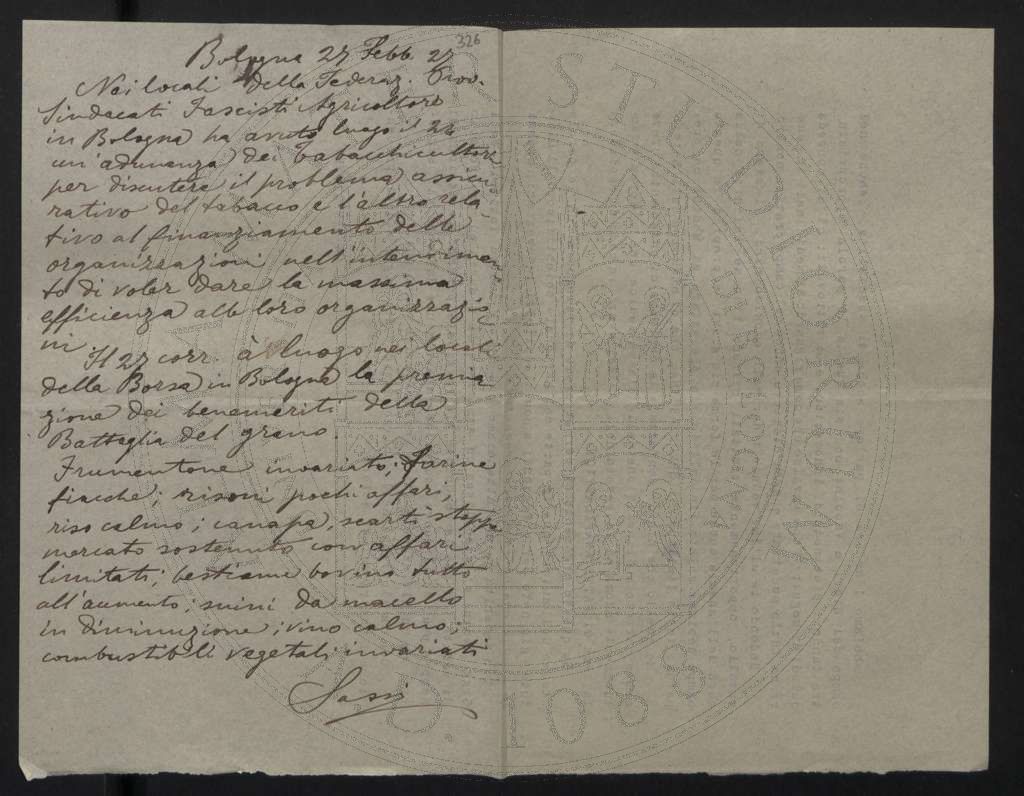 326
Bologna 27 Febb. 27
Nei locali della Federaz. Prov.
Sindacati Fascisti Agricoltori
in Bologna ha avuto luogo il 24
un'adunanza dei tabacchicultori
per discutere il problema assicu-
rativo del tabacco e l'altro rela-
tivo al finanziamento delle
organizzazioni nell'intendimen-
to di voler dare la massima
efficienza alle loro organizzazio-
ni.
Il 27 corr. à luogo nei locali
della Borsa in Bologna la premia
zione dei benemeriti della
Battaglia del grano.
Frumentone invariato; farine
fiacche; risoni pochi affari,
riso calmo; canapa, scarti stoppe
mercato sostenuto con affari
limitati; bestiame bovino tutto
all'aumento; suini da macello
in diminuzione; vino calmo;
combustibili vegetali invariati
Sassi
ALMA MATER STUDIORUM
A.D. 1088